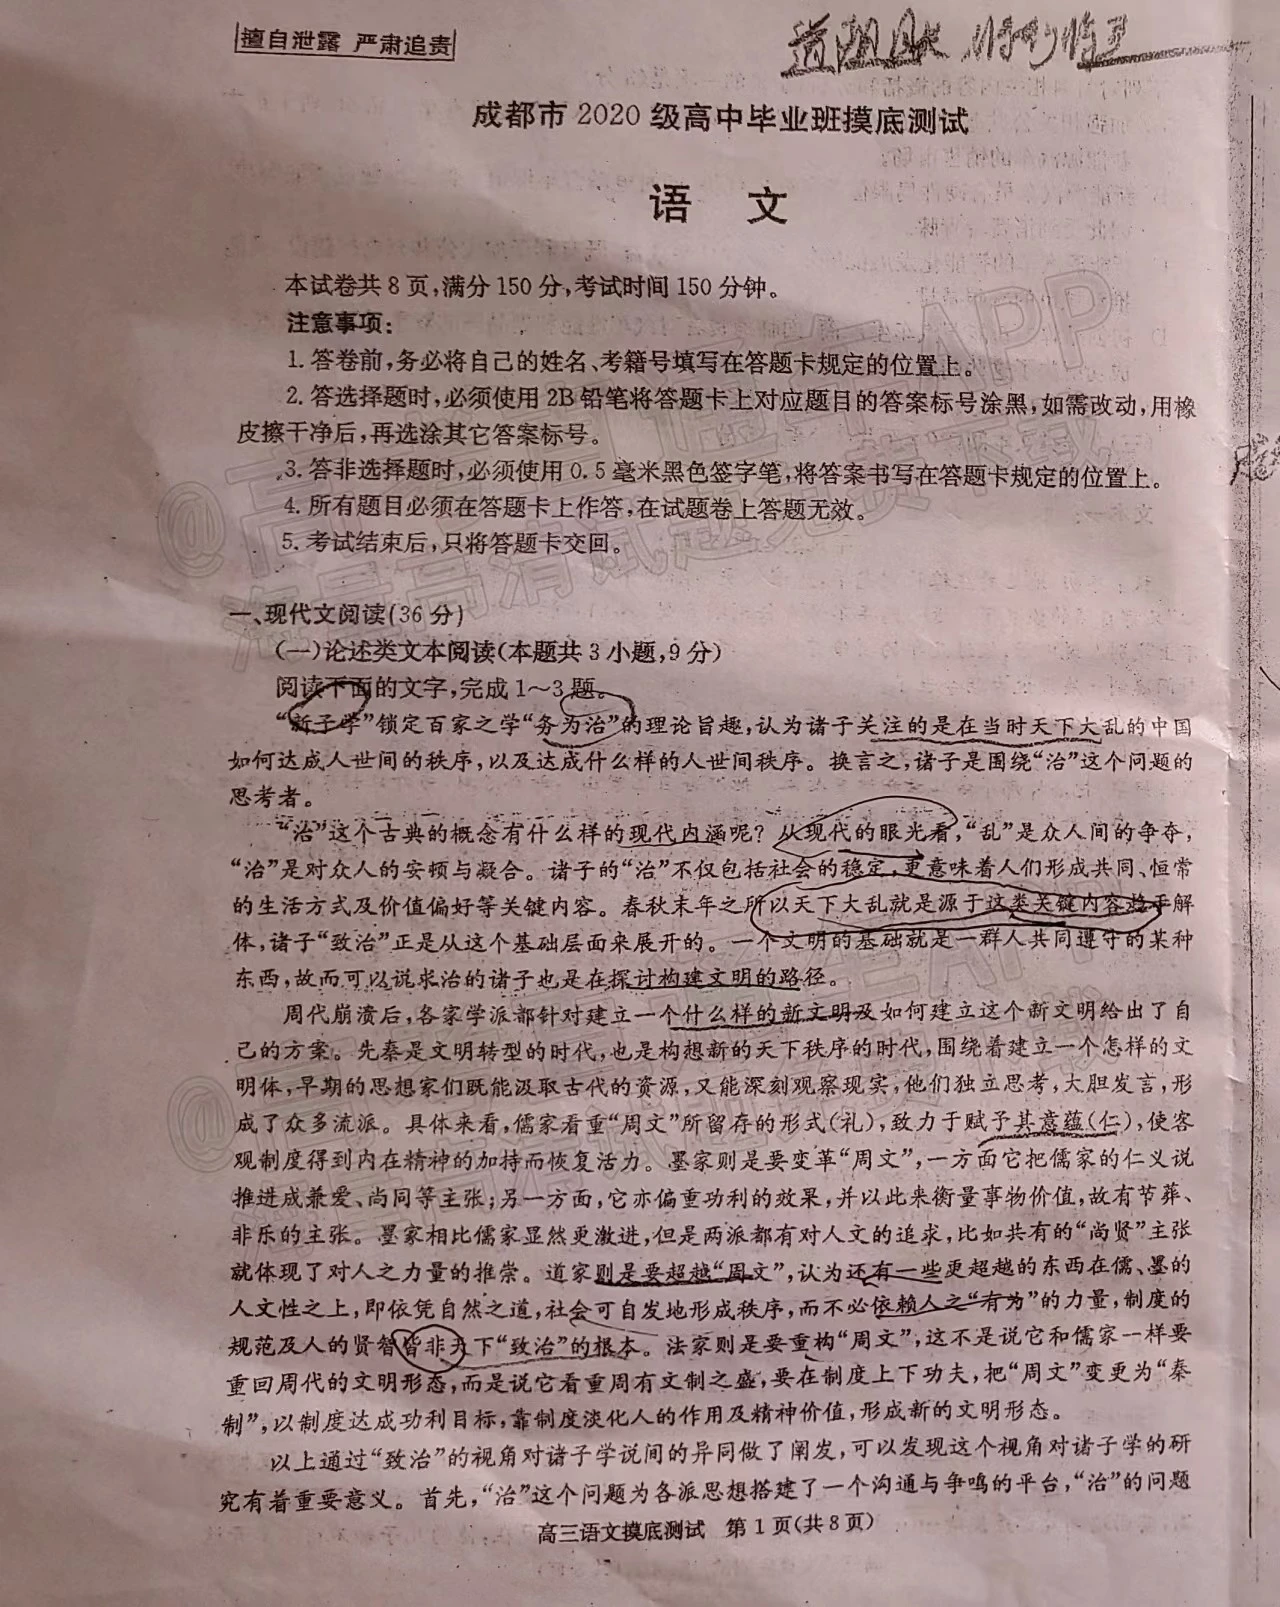 擅自泄露 严肃追责
成都市 2020 级高中毕业班摸底测试
语 文
本试卷共 8 页,满分 150 分,考试时间 150 分钟。
注意事项:
1. 答卷前,务必将自己的姓名、考籍号填写在答题卡规定的位置上。
2. 答选择题时,必须使用 2B 铅笔将答题卡上对应题目的答案标号涂黑,如需改动,用橡
皮擦干净后,再选涂其它答案标号。
3. 答非选择题时,必须使用 0.5 毫米黑色签字笔,将答案书写在答题卡规定的位置上。
4. 所有题目必须在答题卡上作答,在试题卷上答题无效。
5. 考试结束后,只将答题卡交回。
一、现代文阅读(36 分)
(一)论述类文本阅读(本题共 3 小题,9 分)
阅读下面的文字,完成 1～3 题。
“新子学”锁定百家之学“务为治”的理论旨趣,认为诸子关注的是在当时天下大乱的中国
如何达成人世间的秩序,以及达成什么样的人世间秩序。换言之,诸子是围绕“治”这个问题的
思考者。
“治”这个古典的概念有什么样的现代内涵呢？从现代的眼光看,“乱”是众人间的争夺,
“治”是对众人的安顿与凝合。诸子的“治”不仅包括社会的稳定,更意味着人们形成共同、恒常
的生活方式及价值偏好等关键内容。春秋末年之所以天下大乱就是源于这类关键内容趋于解
体,诸子“致治”正是从这个基础层面来展开的。一个文明的基础就是一群人共同遵守的某种
东西,故而可以说求治的诸子也是在探讨构建文明的路径。
周代崩溃后,各家学派都针对建立一个什么样的新文明及如何建立这个新文明给出了自
己的方案。先秦是文明转型的时代,也是构想新的天下秩序的时代,围绕着建立一个怎样的文
明体,早期的思想家们既能汲取古代的资源,又能深刻观察现实,他们独立思考,大胆发言,形
成了众多流派。具体来看,儒家看重“周文”所留存的形式(礼),致力于赋予其意蕴(仁),使客
观制度得到内在精神的加持而恢复活力。墨家则是要变革“周文”,一方面它把儒家的仁义说
推进成兼爱、尚同等主张;另一方面,它亦偏重功利的效果,并以此来衡量事物价值,故有节葬、
非乐的主张。墨家相比儒家显然更激进,但是两派都有对人文的追求,比如共有的“尚贤”主张
就体现了对人之力量的推崇。道家则是要超越“周文”,认为还有一些更超越的东西在儒、墨的
人文性之上,即依凭自然之道,社会可自发地形成秩序,而不必依赖人之“有为”的力量,制度的
规范及人的贤智皆非天下“致治”的根本。法家则是要重构“周文”,这不是说它和儒家一样要
重回周代的文明形态,而是说它看重周有文制之盛,要在制度上下功夫,把“周文”变更为“秦
制”,以制度达成功利目标,靠制度淡化人的作用及精神价值,形成新的文明形态。
以上通过“致治”的视角对诸子学说间的异同做了阐发,可以发现这个视角对诸子学的研
究有着重要意义。首先,“治”这个问题为各派思想搭建了一个沟通与争鸣的平台,“治”的问题
高三语文摸底测试 第 1 页(共 8 页)